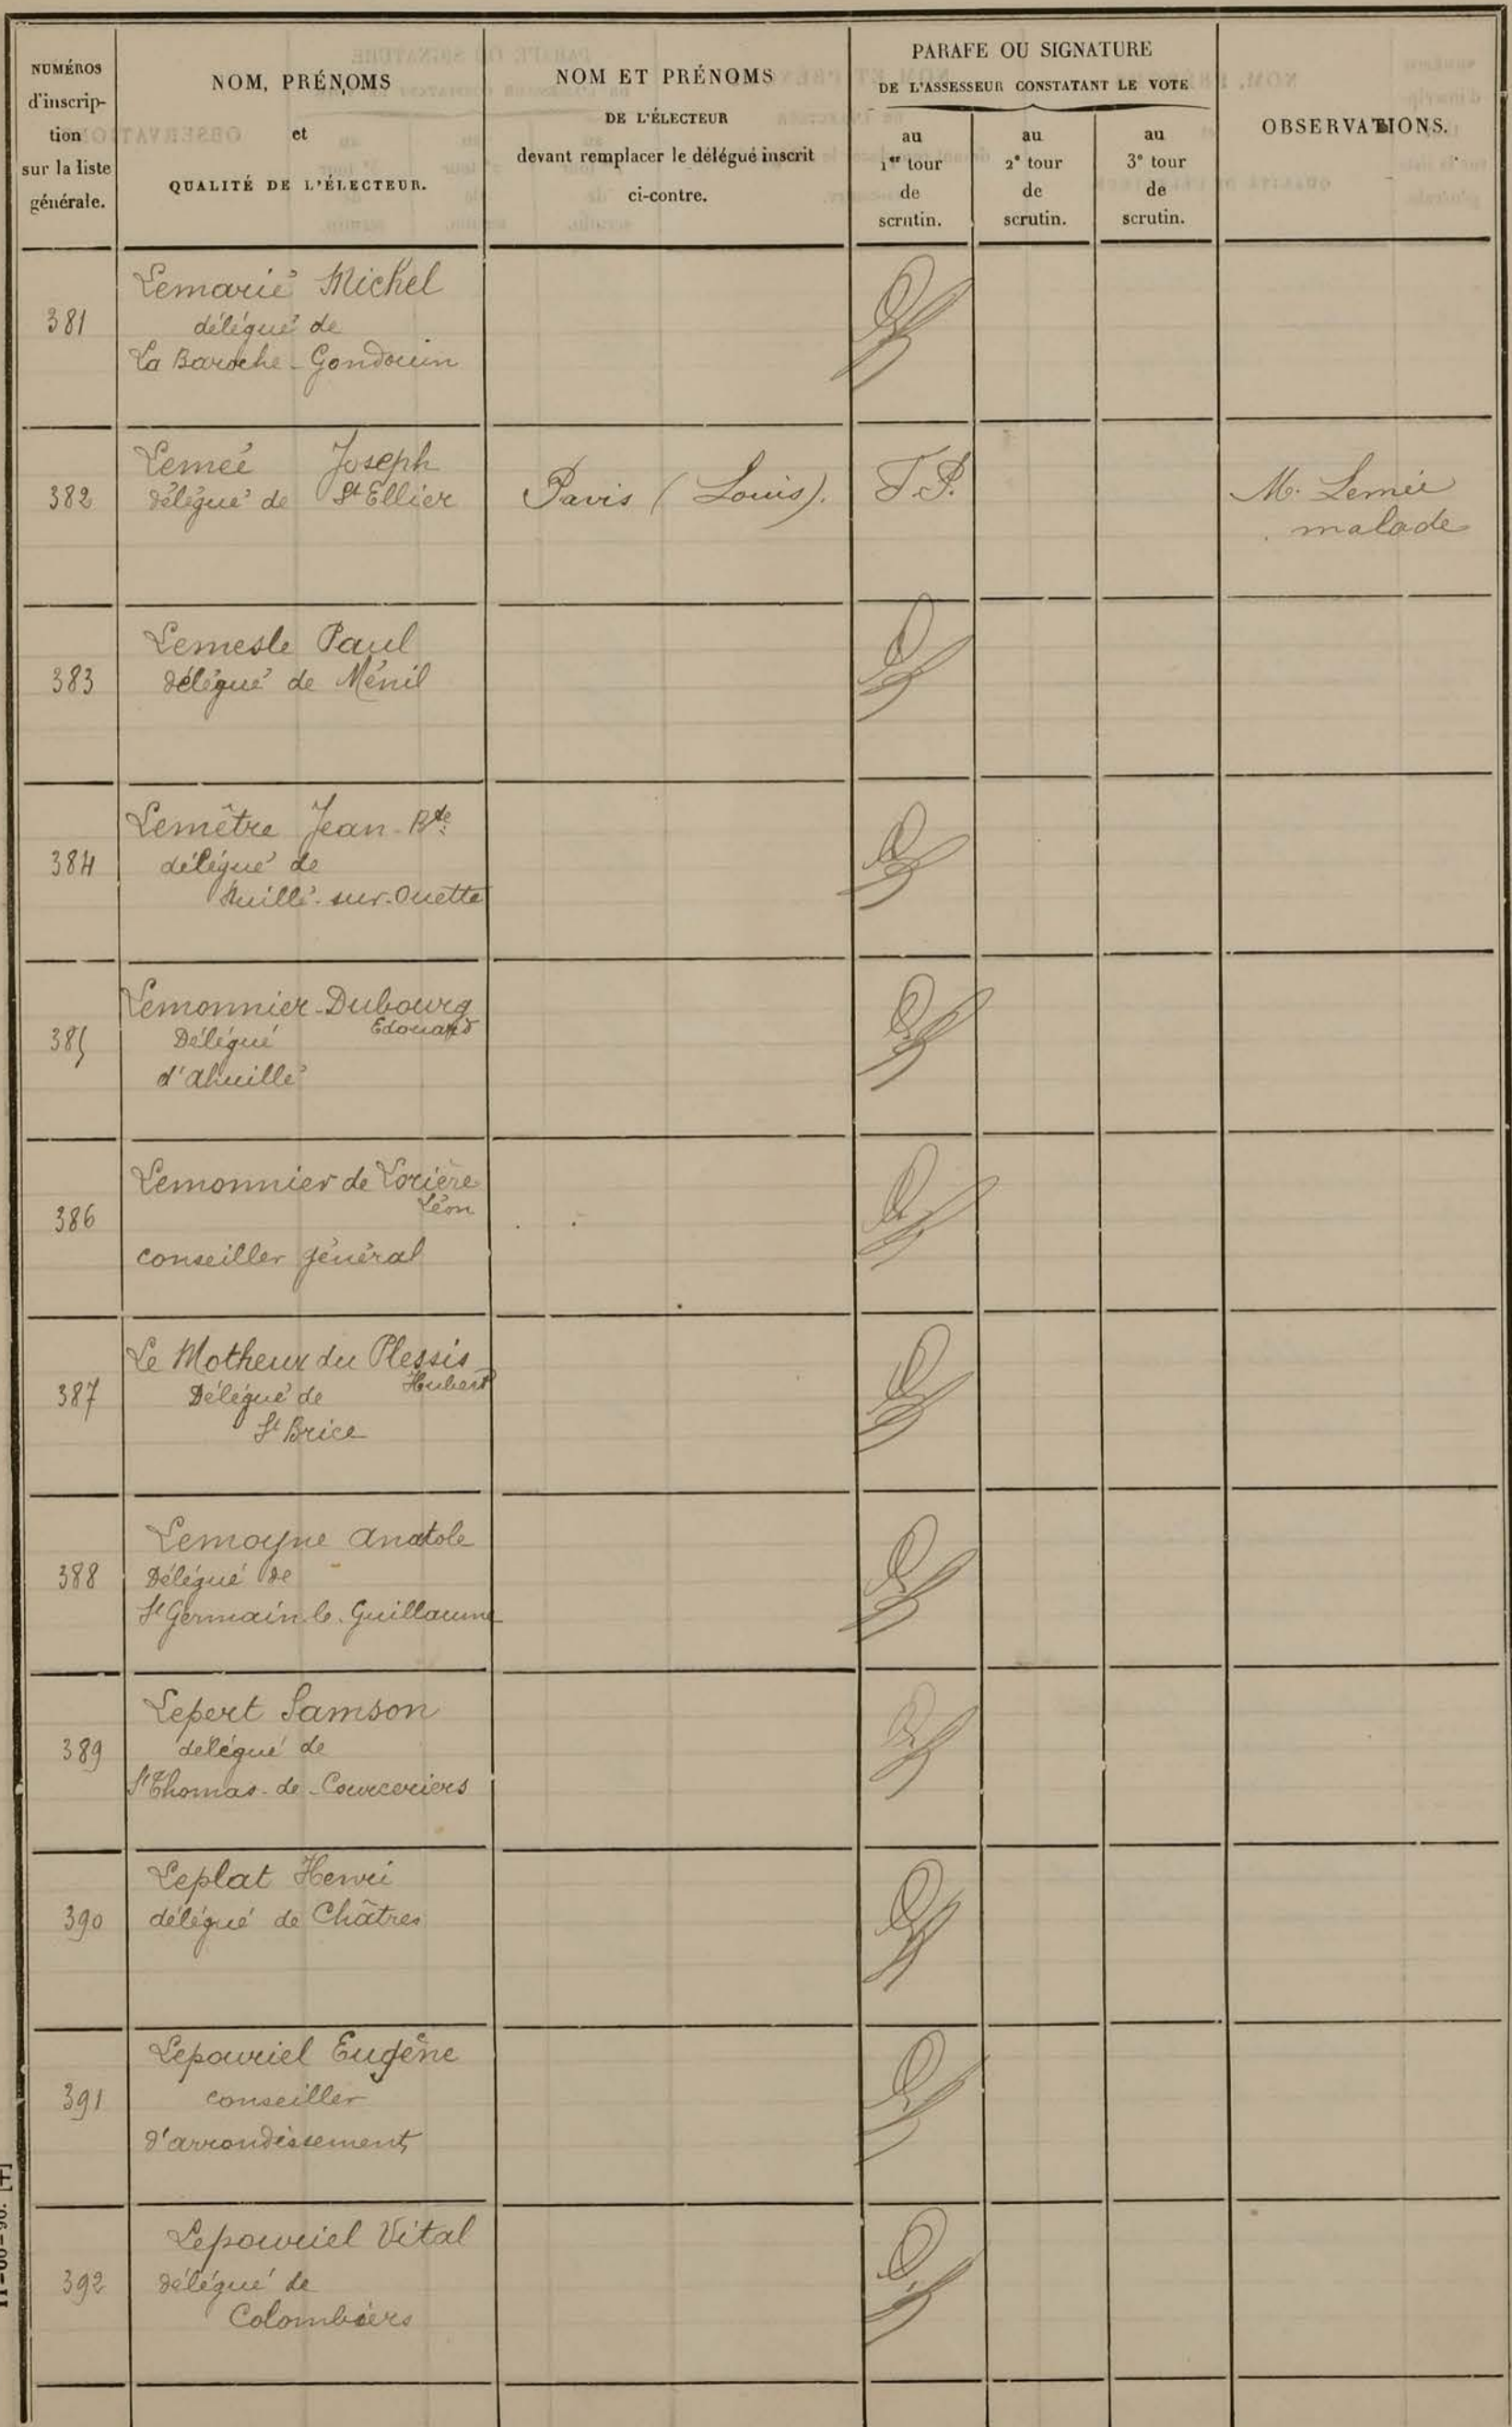 NUMÉROS
d'inscrip-
tion
sur la liste
générale.
NOM, PRÉNOMS
et
QUALITÉ DE L'ÉLECTEUR.
NOM ET PRÉNOMS
DE L'ÉLECTEUR
devant remplacer le délégué inscrit
ci-contre.
PARAFE OU SIGNATURE
DE L'ASSESSEUR CONSTATANT LE VOTE
au
1er tour
de
scrutin.
au
2e tour
de
scrutin.
au
3e tour
de
scrutin.
OBSERVATIONS.
381
Lemarié Michel
délégué de
La Baroche-Gondouin
382
Lemée Joseph
délégué de St Ellier
Pavis (Louis).
T.P.
M. Lemée
malade
383
Lemesle Paul
délégué de Ménil
384
Lemêtre Jean-Bte
délégué de
Nuillé-sur-Ouette
385
Lemonnier-Dubourg
Edouard
Délégué
d'Ahuillé
386
Lemonnier de Lorière
Léon
conseiller général
387
Le Motheux du Plessis
Hubert
Délégué de
St Brice
388
Lemoyne Anatole
Délégué de
St Germain le Guillaume
389
Lepert Samson
delégué de
St Thomas-de-Courceriers
390
Leplat Henri
délégué de Châtres
391
Lepouriel Eugène
conseiller
d'arrondissement
392
Lepouriel Vital
délégué de
Colombiers